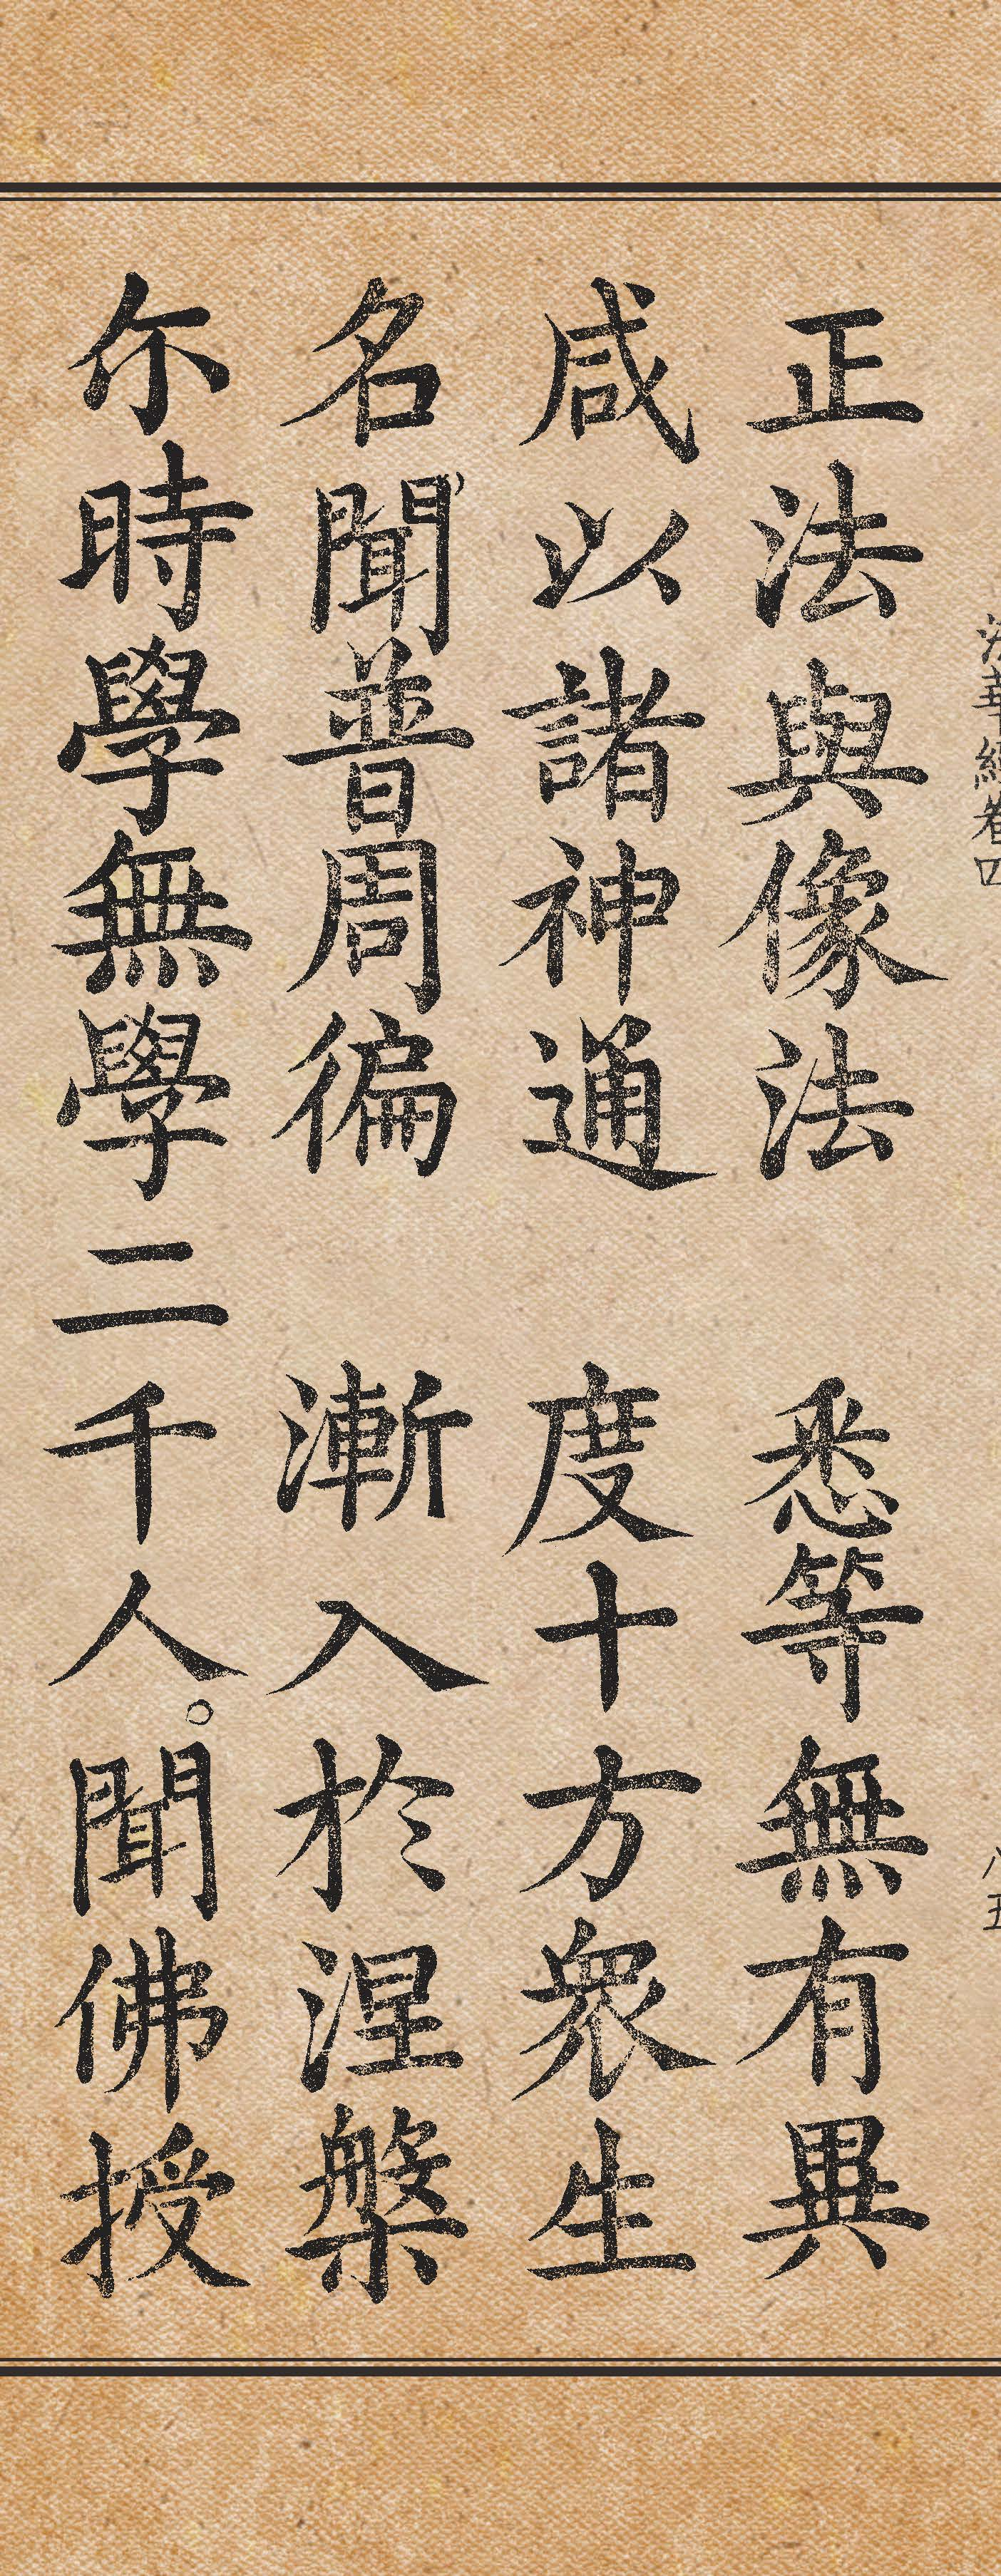 法華經卷四 八五
正法與像法 悉等無有異
咸以諸神通 度十方眾生
名聞普周徧 漸入於涅槃
尒時學無學二千人。聞佛授